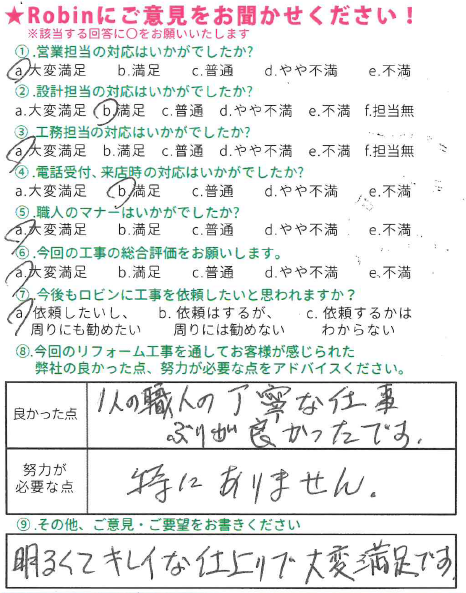 ★Robinにご意見をお聞かせください！
※該当する回答に○をお願いいたします
①.営業担当の対応はいかがでしたか?
a.大変満足 b.満足 c.普通 d.やや不満 e.不満
②.設計担当の対応はいかがでしたか?
a.大変満足 b.満足 c.普通 d.やや不満 e.不満 f.担当無
③.工務担当の対応はいかがでしたか?
a.大変満足 b.満足 c.普通 d.やや不満 e.不満 f.担当無
④.電話受付、来店時の対応はいかがでしたか?
a.大変満足 b.満足 c.普通 d.やや不満 e.不満
⑤.職人のマナーはいかがでしたか?
a.大変満足 b.満足 c.普通 d.やや不満 e.不満
⑥.今回の工事の総合評価をお願いします。
a.大変満足 b.満足 c.普通 d.やや不満 e.不満
⑦.今後もロビンに工事を依頼したいと思われますか？
a.依頼したいし、 b.依頼はするが、 c.依頼するかは
周りにも勧めたい 周りには勧めない わからない
⑧.今回のリフォーム工事を通してお客様が感じられた
弊社の良かった点、努力が必要な点をアドバイスください。
良かった点
1人の職人の丁寧な仕事
ぶりが良かったです.
努力が
必要な点
特にありません。
⑨.その他、ご意見・ご要望をお書きください
明るくてキレイな仕上りで大変満足です.